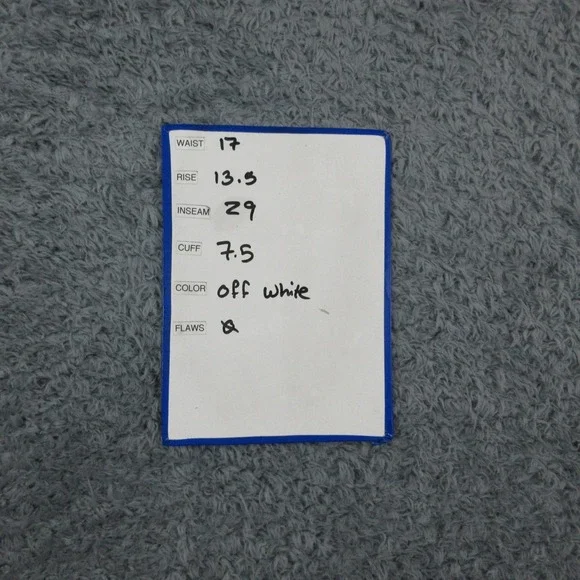 WAIST 17
RISE 13.5
INSEAM 29
CUFF 7.5
COLOR off white
FLAWS Ø